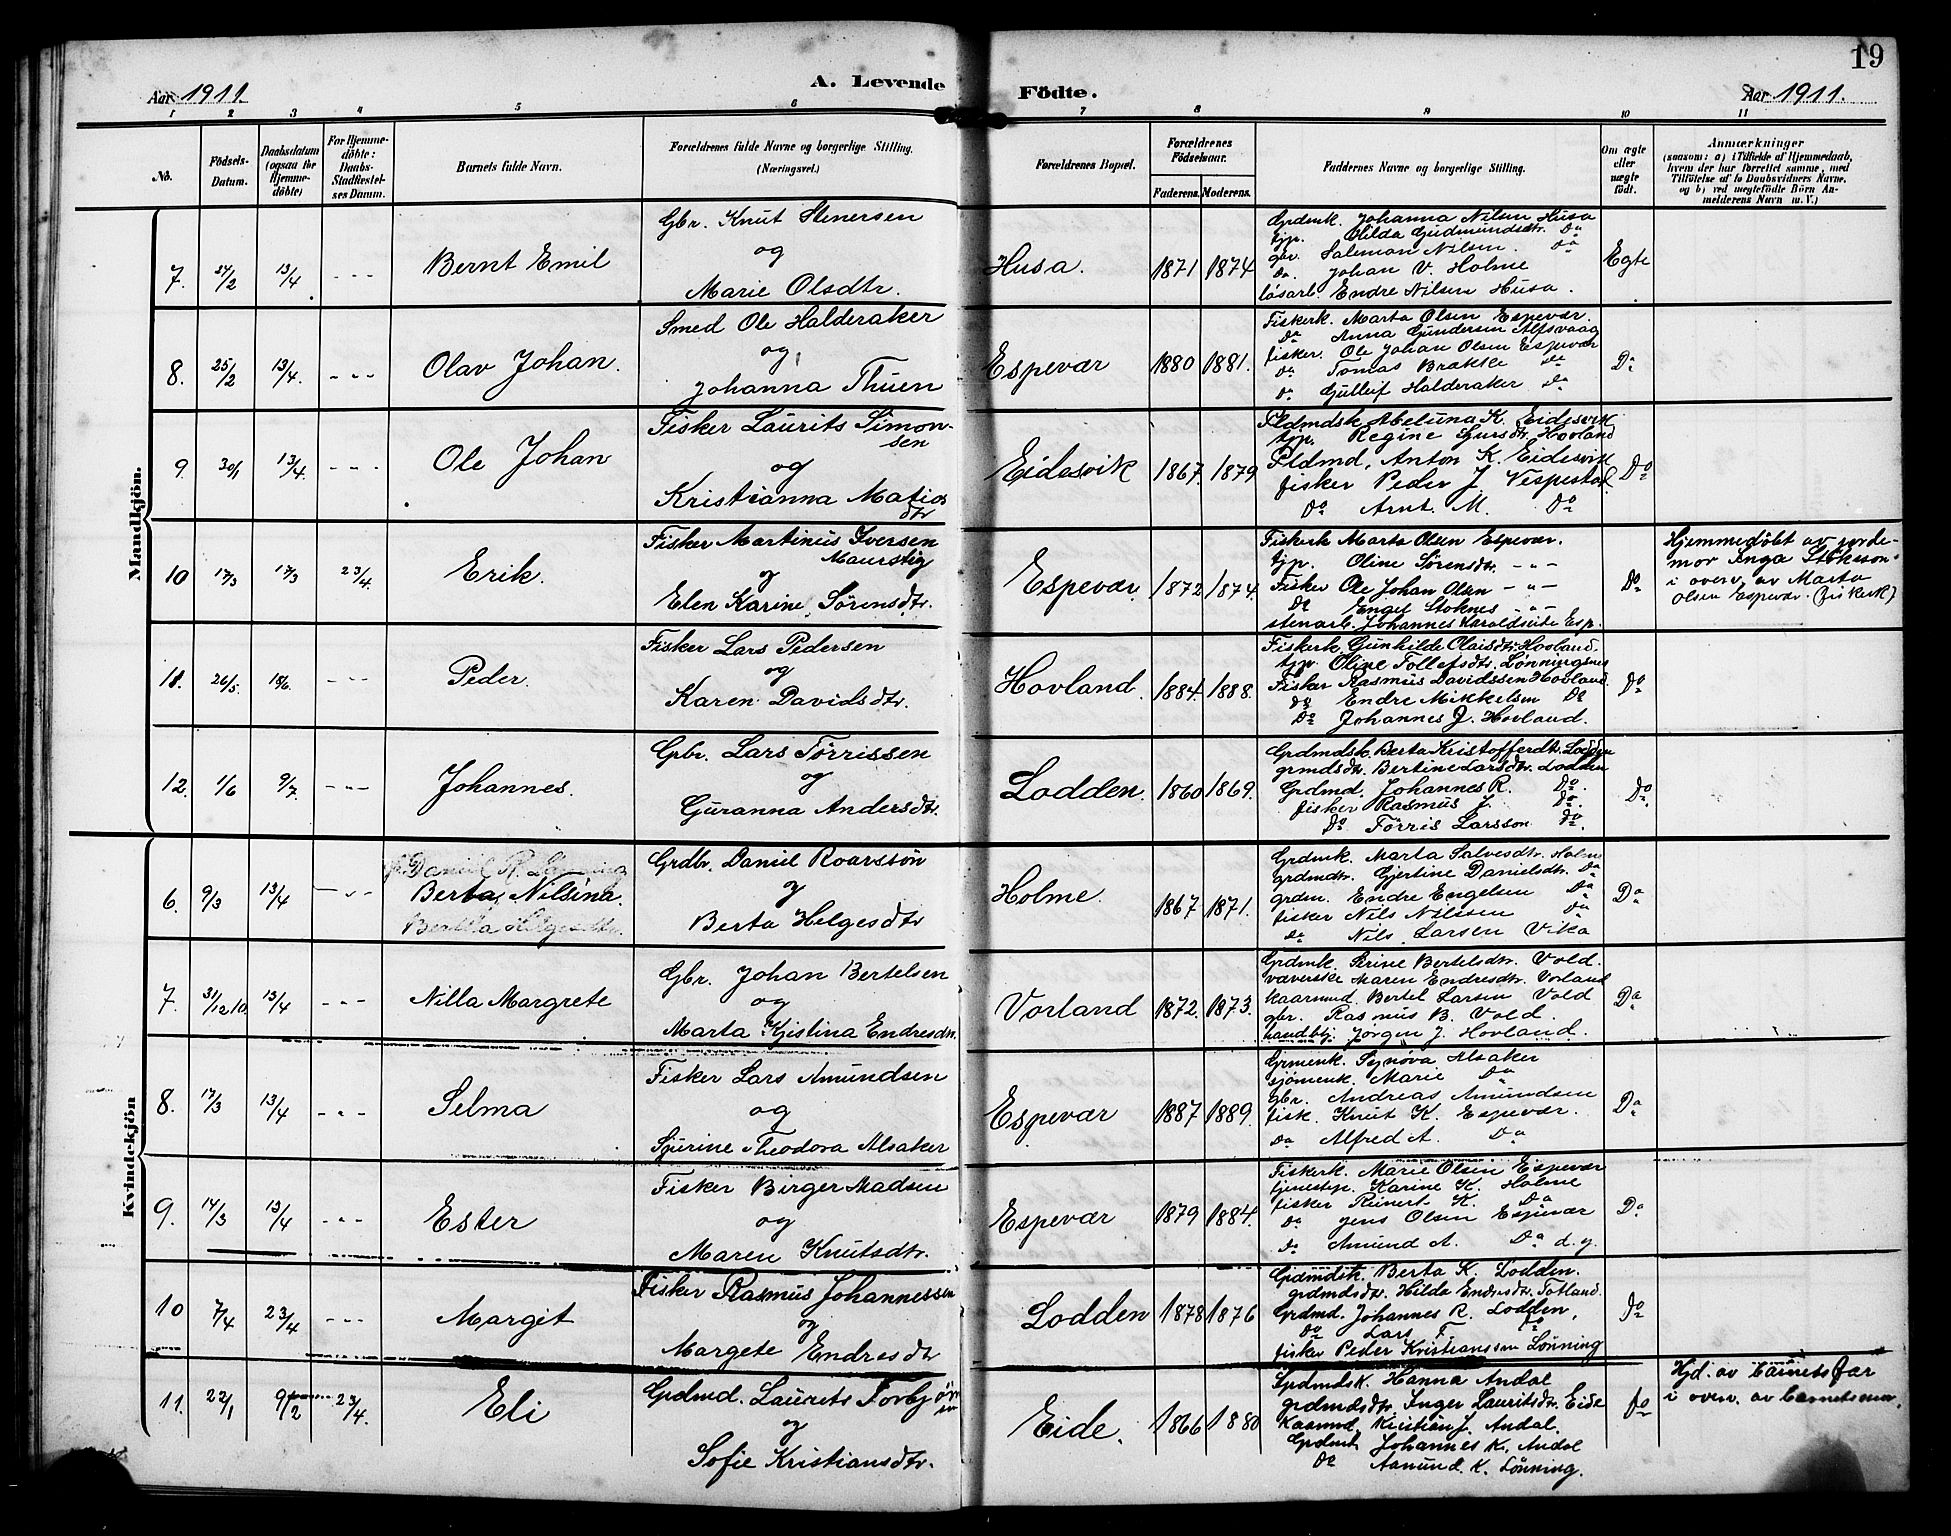 19
Aar 1911.
A. Levende Födte.
Aar 1911.
1 2 3 4 5 6 7 8 9 10 11
No.
Födsels-Datum.
Daabsdatum (ogsaa for Hjemme-döbte)
For Hjemme-döbte: Daabs-Stadfæstel-ses Datum.
Barnets fulde Navn.
Forældrenes fulde Navne og borgerlige Stilling. (Næringsvei.)
Forældrenes Bopæl.
Forældrenes Födselsaar.
Faderens. Moderens.
Faddernes Navne og borgerlige Stilling.
Om ægte eller uægte födt.
Anmærkninger
(saasom: a) i Tilfælde af Hjemmedaab,
hvem der har forrettet samme, med
Tilföielse af to Daabsvidners Navne,
og b) ved uægtefödte Börn An-
melderens Navn m. V.)
Mandkjön.
7. 27/2 13/4 - " - Bernt Emil
Gbr. Knut Stenersen
og
Marie Olsdtr.
Husa. 1871 1874
Grdmk. Johanna Nilsen Husa
tjp. Hilda Gudmundsdtr. Do
gbr. Salemon Nilsen. Do
Do. Johan V. Holme
lösarb. Endre Nilsen Husa.
Egte
8. 25/2 13/4. - " - Olav Johan.
Smed Ole Halderaker
og
Johanna Thuen
Espevær 1880 1881.
Fiskerk. Marta Olsen Espevær.
Do Anna Gundersen Alfsvaag
fisker. Ole Johan Olsen Espevær
Do Tomas Brakke Do
Do Gulleif Halderaker Do
Do
9. 30/1 13/4. - " - Ole Johan
Fisker Laurits Simon-
sen
og
Kristianna Matias
dtr
Eidesvik 1867. 1879
Pldmdsk Abeluna K. Eidesvik
tjp. Regine Sjursdtr. Hovland
Pldmd. Anton K. Eidesvik
fisker Peder J. Vespestad.
Do Arnt M. Do
Do
10 17/3 17/3 23/4. Erik.
Fisker Martinus Iversen
Maurstig
og
Elen Karine Sørensdtr.
Espevær. 1872 1874.
Fiskerk Marta Olsen Espevær.
tjp. Oline Sørensdtr. - " -
Fisker Ole Johan Olsen - " -
Do Engel Stoknes - " -
stenarb. Johannes Haroldseide Esp.
Do
Hjemmedöbt av jorde-
mor Inga Stoksson
i overv. av Marta
Olsen Espevær. (fiskerk)
11. 26/5. 18/6. - " - Peder.
Fisker Lars Pedersen
og
Karen Davidsdtr.
Hovland. 1884. 1888.
Fiskerk. Gunhilde Olaisdtr. Hovland.
tjp. Oline Tollefsdtr. Lønningsnes
Fisker Rasmus Davidssen Hovland.
Do Endre Mikkelsen Do
Do Johannes J. Hovland.
Do
12. 1/6 9/7. - " - Johannes.
Gbr. Lars Tørrissen
og
Guranna Andersdtr.
Lodden. 1860 1869.
Grdmdsk. Berta Kristofferdtr. Lodden
grmdsdtr. Bertine Larsdtr. Lodden
Grdmd. Johannes R. Do.
fisker Rasmus J. Do.
Do Tørris Larsson Do.
Do
Kvindekjön
6. 9/3 13/4 - " - Berta Nilsina.
Grdbr. Daniel Roarssön
og
Berta Helgesdtr
Holme. 1867 1871.
Grdmk. Marta Salvesdtr. Holme
grdmdtr. Gjertine Danielsdtr. Do
grdm. Endre Engelsen Do
fisker Nils Nilssen Do
Do Nils Larsen Vika
Do
7. 31/12 10. 13/4 - " - Nilla Margrete
Gbr. Johan Bertelsen
og
Marta Kjistina Endresdtr.
Vorland 1872. 1873.
Grdmk. Serine Bertelsdtr. Vold.
væverske Maren Endresdtr. Vorland
kaarmd. Bertel Larsen Vold
gbr. Rasmus B. Vold.
handbtj. Jørgen J. Hovland.
Do
8. 17/3 13/4 - " - Selma
Fisker Lars Amundsen
og
Sjurine Theodora Alsaker
Espevær 1887 1889.
Grmenk. Synøva Alsaker
sjömenk. Marie Do
gbr. Andreas Amundsen
fisk. Knut K. Espevær.
Do Alfred A. Do
Do
9. 14/3 13/4 - " - Ester
Fisker Birger Madsen
og
Maren Knutsdtr.
Espevær 1879 1884.
Fiskerk. Marie Olsen Espevær
tjenestp. Karine K. Holme
fisker Reinert K. Do
Do Jens Olsen Espevær
Do Amund A. Do d.y.
Do
10 7/4 23/4 - " - Margit
Fisker Rasmus Johannessen
og
Margete Endresdtr
Lodden 1878 1876
Grdmdsk. Berta K. Lodden.
grdmdsdtr. Hilda Endresdtr. Totland.
Grdmd. Johannes R. Lodden.
Do Lars T. Do
fisker Peder Kristianssen Lønning
Do
11. 22/1 9/2 23/4. Eli
Grdmd. Laurits Torbjörn
sen
og
Sofie Kristiansdtr.
Eide. 1866 1880
Grdmdsk. Hanna Andal
grdmdsdtr. Inger Lauritsdtr. Eide
Kaarmd. Kristian J. Andal.
Grdmd. Johannes K. Andal
Do Aamund K. Lönning.
Do
Hjd. av barnets far
i overv. av barnets mor.